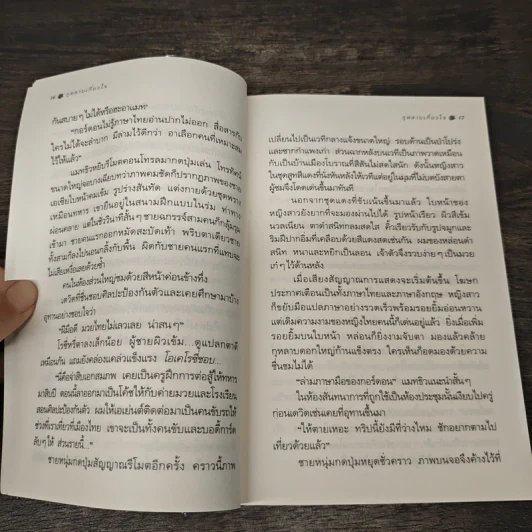 ๑๖ บุพตามเกี่ยวใจ
กันสบายๆ ไม่ได้หรือฮะอาแมท"
"กอร์ดอนไม่รู้ภาษาไทยอ่านปากไม่ออก สื่อสารกับ
ใครไม่ได้จะลำบาก มีล่ามไว้ดีกว่า อาเลือกคนที่เหมาะสม
ไว้ให้แล้ว"
แมทธิวหยิบรีโมตคอนโทรลมากดปุ่มเล่น โทรทัศน์
ขนาดใหญ่จอบางเฉียบกว่าภาพคมชัดก็ปรากฏภาพของชาย
เอเชียใบหน้าคมเข้ม รูปร่างสันทัด แต่งกายด้วยชุดพราง
เหมือนทหาร เขายืนอยู่ในสนามฝึกแบบในร่ม ท่าทาง
ผ่อนคลาย แต่ในชั่ววินาทีสั้นๆ ชายฉกรรจ์สามคนก็กลุ้มรุม
เข้ามา ชายคนแรกออกหมัดสะบัดเท้า พริบตาเดียวชาย
ทั้งสามก็ลงไปนอกกลิ้งกับพื้น ผิดกับชายคนแรกที่แทบจะ
ไม่เสียเหงื่อเลยด้วยซ้ำ
คนในห้องส่วนใหญ่ชมด้วยสีหน้าค่อนข้างทึ่ง
เดวิดที่ชื่นชอบศิลปะป้องกันตัวและเคยศึกษามาบ้าง
อุทานอย่างชอบใจว่า
"ฝีมือดี มวยไทยไม่เลวเลย น่าสนๆ"
โรซี่หรี่ตาลงเล็กน้อย ผู้ชายผิวเข้ม...ดูแปลกตาดี
เหมือนกัน แถมยังคล่องแคล่วแข็งแรง โอเคโรซี่ชอบ...
"นี่คือจ่าสิบเอกสมภพ เคยเป็นครูฝึกการต่อสู้ให้ทหาร
มาสิบปี ตอนนี้ลาออกไปเป็นโค้ชให้กับค่ายมวยและโรงเรียน
สอนศิลปะป้องกันตัว ผมให้เอเย่นต์ติดต่อมาเป็นคนขับรถให้
ช่วงที่เราเที่ยวที่เมืองไทย เขาจะเป็นทั้งคนขับและบอดี้การ์ด
ลับๆ ให้ ส่วนรายนี้..."
ชายหนุ่มกดปุ่มสัญญาณรีโมตอีกครั้ง คราวนี้ภาพ
บุพตามเกี่ยวใจ ๑๗
เปลี่ยนไปเป็นเวทีกลางแจ้งขนาดใหญ่ รอบด้านเป็นป่าโปร่ง
และซากกำแพงเก่า ส่วนฉากหลังบนเวทีเป็นภาพวาดเหมือน
กับเป็นบ้านเมืองโบราณที่สีสันไม่สดใสนัก ดังนั้นหญิงสาว
ในชุดสูทสีแดงที่นั่งหันหลังให้เวทีแต่อยู่ในมุมที่ไม่บดบังสายตา
ผู้ชมจึงโดดเด่นขึ้นมาทันที
นอกจากชุดแดงที่ขับเน้นขึ้นมาแล้ว ใบหน้าของ
หญิงสาวยังยากที่จะมองผ่านไปได้ รูปหน้าเรียว ผิวสีเข้ม
นวลเนียน ตาดำสนิทกลมสดใส คิ้วเรียวรับกับรูปจมูกและ
ริมฝีปากอิ่มที่เคลือบด้วยสีแดงสดเช่นกัน ผมของหล่อนดำ
สนิท หนาและหยิกเป็นลอน เจ้าตัวจึงรวบง่ายๆ เป็นมวย
เก๋ๆ ไว้ด้านหลัง
เมื่อเสียงสัญญาณการแสดงจะเริ่มต้นขึ้น โฆษก
ประกาศเตือนเป็นทั้งภาษาไทยและภาษาอังกฤษ หญิงสาว
ก็ขยับมือแปลภาษาอย่างรวดเร็วพร้อมรอยยิ้มอ่อนหวาน
แต่เดิมความงามของหญิงไทยคนนี้ก็เด่นอยู่แล้ว ยิ่งเมื่อเพิ่ม
รอยยิ้มบนใบหน้า หล่อนก็ยิ่งงามจับตา มองแล้วคล้าย
กุหลาบดอกใหญ่ก้านแข็งตรง ใครเห็นก็อดมองด้วยความ
ชื่นชมไม่ได้
"ล่ามภาษามือของกอร์ดอน" แมทธิวแนะนำสั้นๆ
ในห้องสันทนาการที่ถูกใช้เป็นห้องประชุมนั้นเงียบไปครู่
ก่อนเดวิดเช่นเคยที่อุทานขึ้นมา
"ให้ตายเหอะ ทริปนี้ยังมีที่ว่างไหม ชักอยากตามไป
เที่ยวด้วยแล้ว"
ชายหนุ่มกดปุ่มหยุดชั่วคราว ภาพบนจอจึงค้างไว้ที่